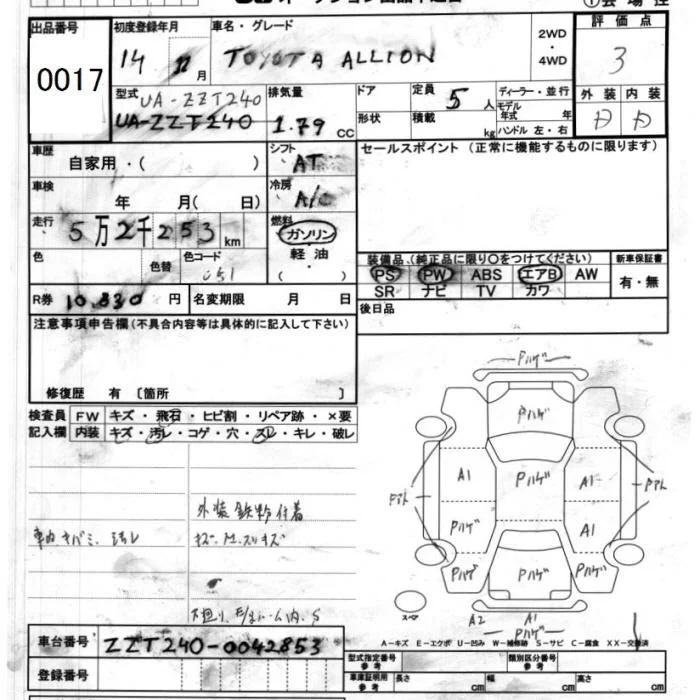 出品番号
0017
初度登録年月
14 年 12 月
車名・グレード
TOYOTA ALLION
2WD
・
4WD
評価点
3
型式
UA-ZZT240
UA-ZZT240
排気量
1.79 cc
ドア
形状
定員 5 人
積載 kg
ディーラー・並行
モデル年式 年
ハンドル 左・右
外装 内装
D D
車歴
自家用・( )
シフト
AT
セールスポイント (正常に機能するものに限ります)
車検
年 月( 日)
冷房
A/C
走行
5万2千253 km
燃料
ガソリン
軽油
( )
色
色替
色コード
051
装備品 (純正品に限り○をつけてください)
新車保証書
PS PW ABS エアB AW
SR ナビ TV カワ
有・無
R券 10,830 円
名変期限 月 日
後日品
注意事項申告欄(不具合内容等は具体的に記入して下さい)
修復歴 有 〔箇所 〕
検査員
記入欄
FW キズ・飛石・ヒビ割・リペア跡・×要
内装 キズ・汚レ・コゲ・穴・スレ・キレ・破レ
外装 鉄粉付着
車内 キバミ、汚レ
Pハゲ
Pハゲ
A1
Pハゲ
A1
Pハゲ
A1
Pハゲ
Pハゲ
Pハゲ
A2
A1
Pハゲ
スペア
A-キズ E-エクボ U-凹み W-補修跡 S-サビ C-腐食 XX-交換済
車台番号
ZZT240-0042853
登録番号
型式指定番号
参考
類別区分番号
参考
車庫証明用
参考
長さ cm 幅 cm 高さ cm